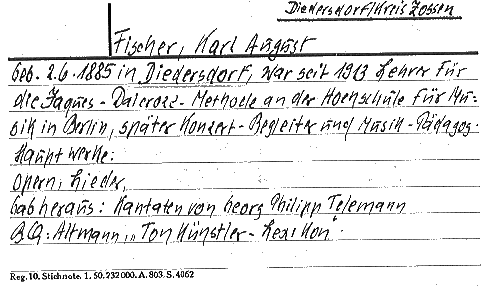 Diedersdorf/Kreis Zossen
Fischer, Karl August
Geb. 2.6.1885 in Diedersdorf, war seit 1913 Lehrer für
die Jaques-Dalcroze-Methode an der Hochschule für Mu-
sik in Berlin, später Konzert-Begleiter und Musik-Pädagog.
Hauptwerke:
Opern, Lieder,
Gab heraus: Kantaten von Georg Philipp Telemann
B.Q.: Altmann, „Tonkünstler-Lexikon".
Reg. 10. Stichnote. 1. 50. 232000. A. 803. S. 4062